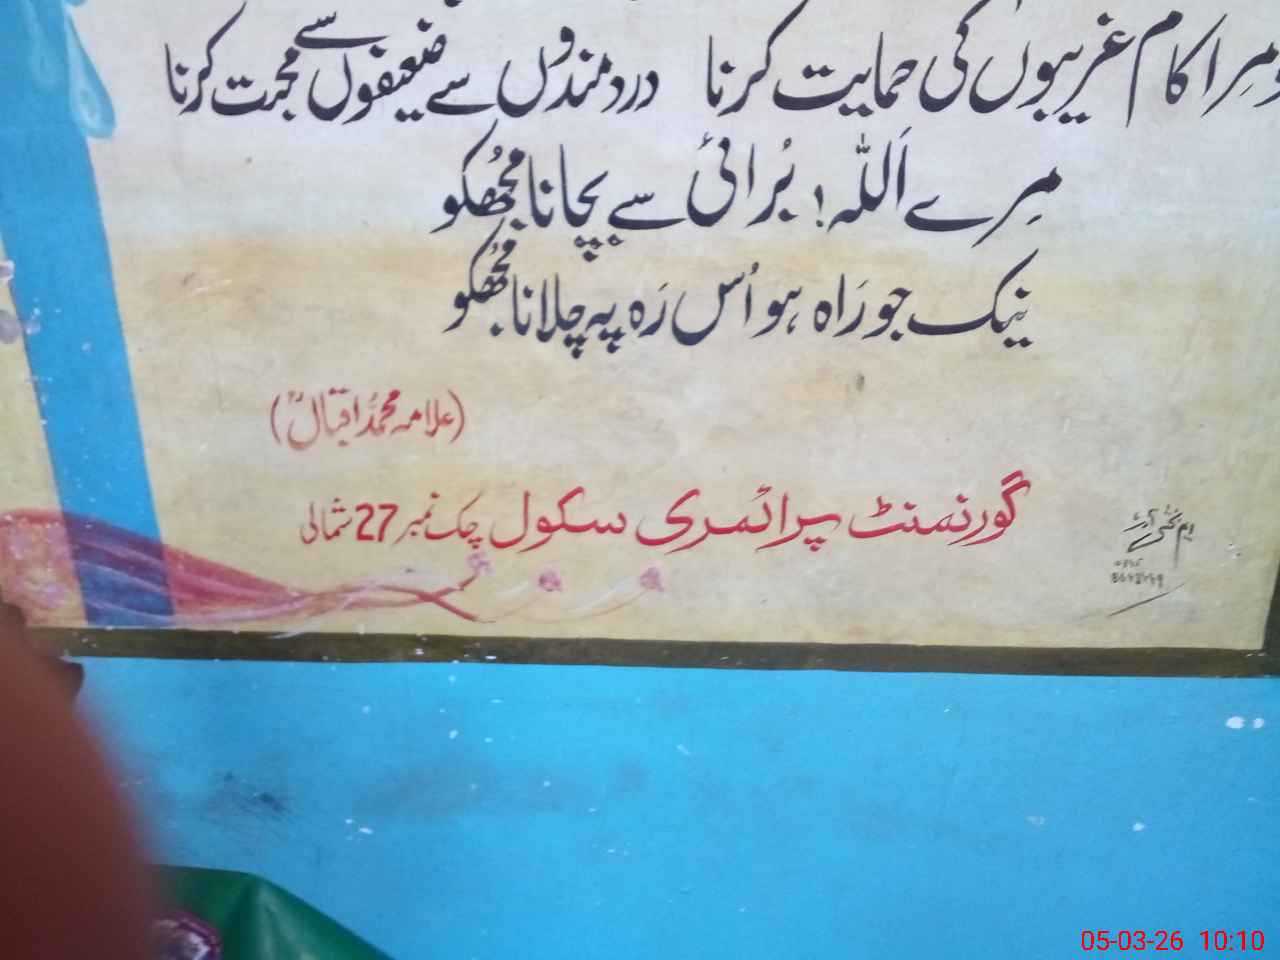 ہو مرا کام غریبوں کی حمایت کرنا دردمندوں سے ضعیفوں سے محبت کرنا
مرے اَللہ! بُرائی سے بچانا مجھکو
نیک جو رَاہ ہو اُس رَہ پہ چلانا مجھکو
(علامہ محمدؐ اقبالؒ)
گورنمنٹ پرائمری سکول چک نمبر 27 شمالی
05-03-26 10:10